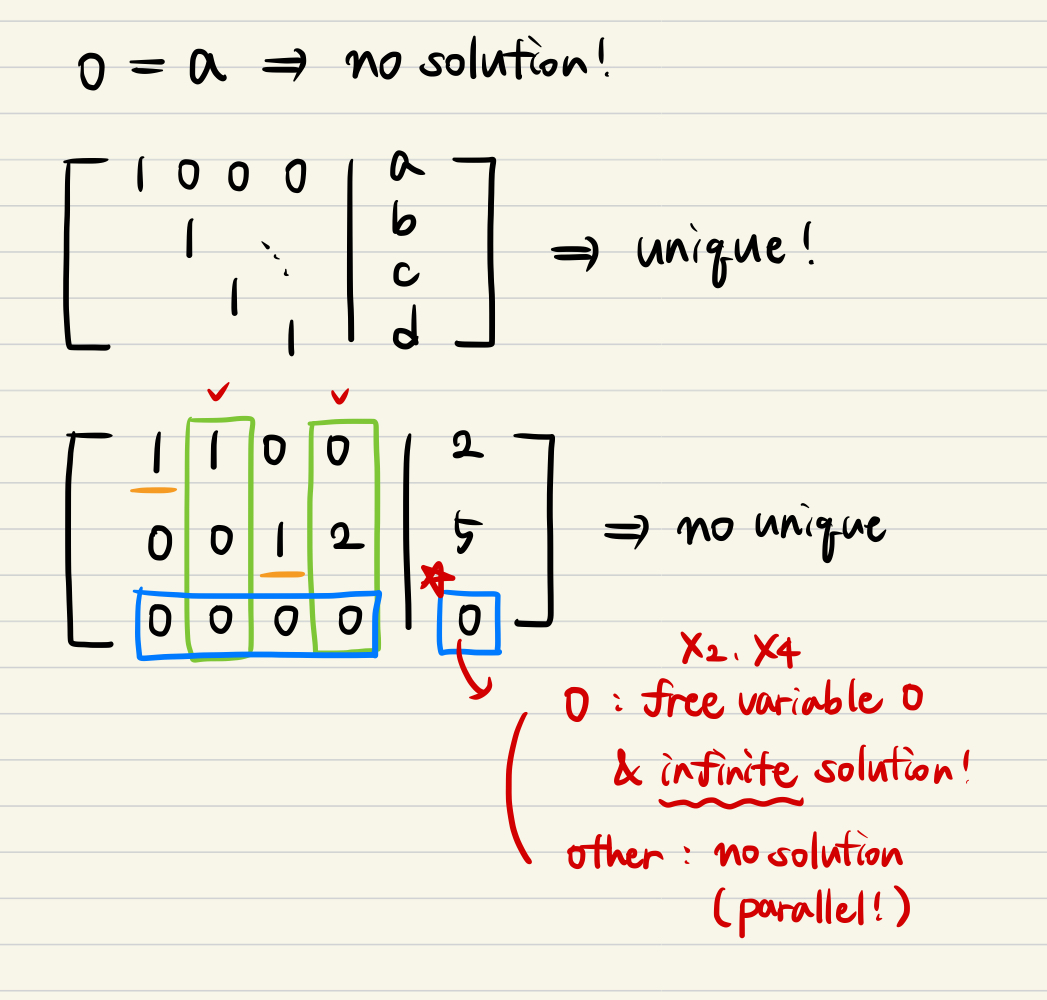 0 = a ⇒ no solution!
[ 1 0 0 0 | a ]
[ 1 ⋱ | b ]
[ 1 | c ]
[ 1 | d ]
⇒ unique!
✓ ✓
[ 1 1 0 0 | 2 ]
[ 0 0 1 2 | 5 ]
[ 0 0 0 0 | 0 ]
⇒ no unique
x2. x4
0 : free variable 0
& infinite solution!
other : no solution
(parallel!)